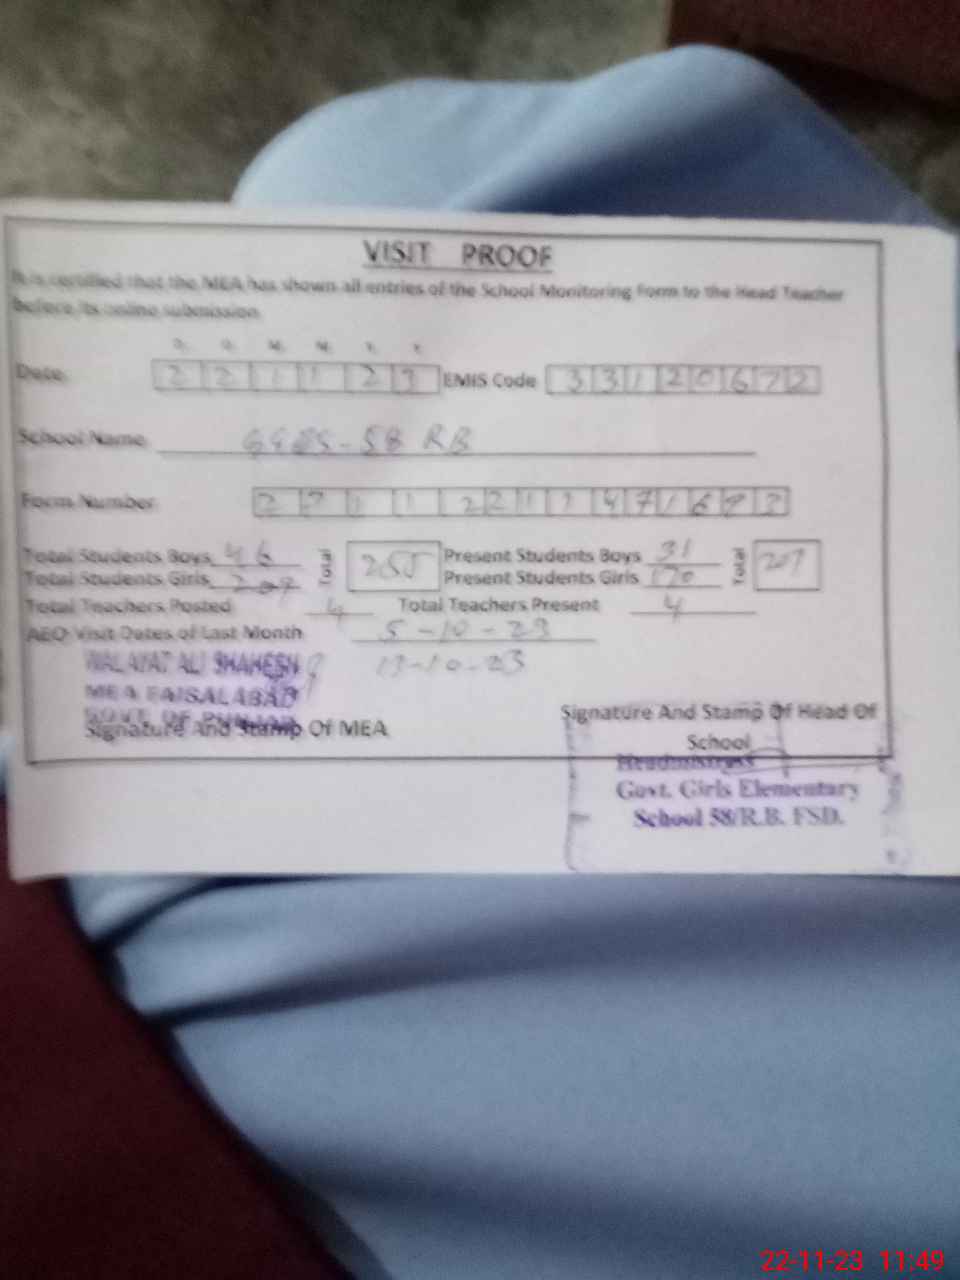 VISIT PROOF
It is certified that the MEA has shown all entries of the School Monitoring Form to the Head Teacher
before its online submission
D. D. M. M. Y. Y.
Date 2 2 1 1 2 3 EMIS Code 3 3 1 2 0 6 7 2
School Name GGES-58 RB
Form Number 2 2 1 1 2 2 1 1 4 7 1 6
Total Students Boys 46 255 Present Students Boys 31 201
Total Students Girls 209 Present Students Girls 170
Total Teachers Posted 4 Total Teachers Present 4
AEO Visit Dates of Last Month 5-10-23
WALAYAT ALI SHAHESH 17-10-23
MEA FAISALABAD
GOVT OF PUNJAB
Signature And Stamp Of MEA
Signature And Stamp Of Head Of
School
Headmistress
Govt. Girls Elementary
School 58/R.B. FSD.
22-11-23 11:49